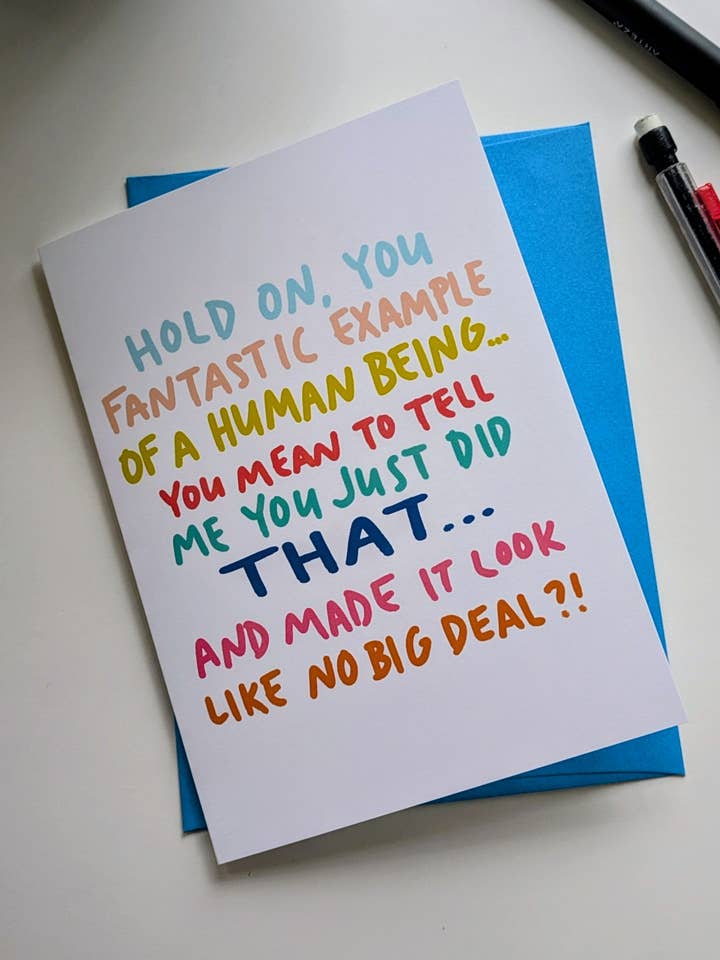 HOLD ON, YOU
FANTASTIC EXAMPLE
OF A HUMAN BEING...
YOU MEAN TO TELL
ME YOU JUST DID
THAT...
AND MADE IT LOOK
LIKE NO BIG DEAL?!